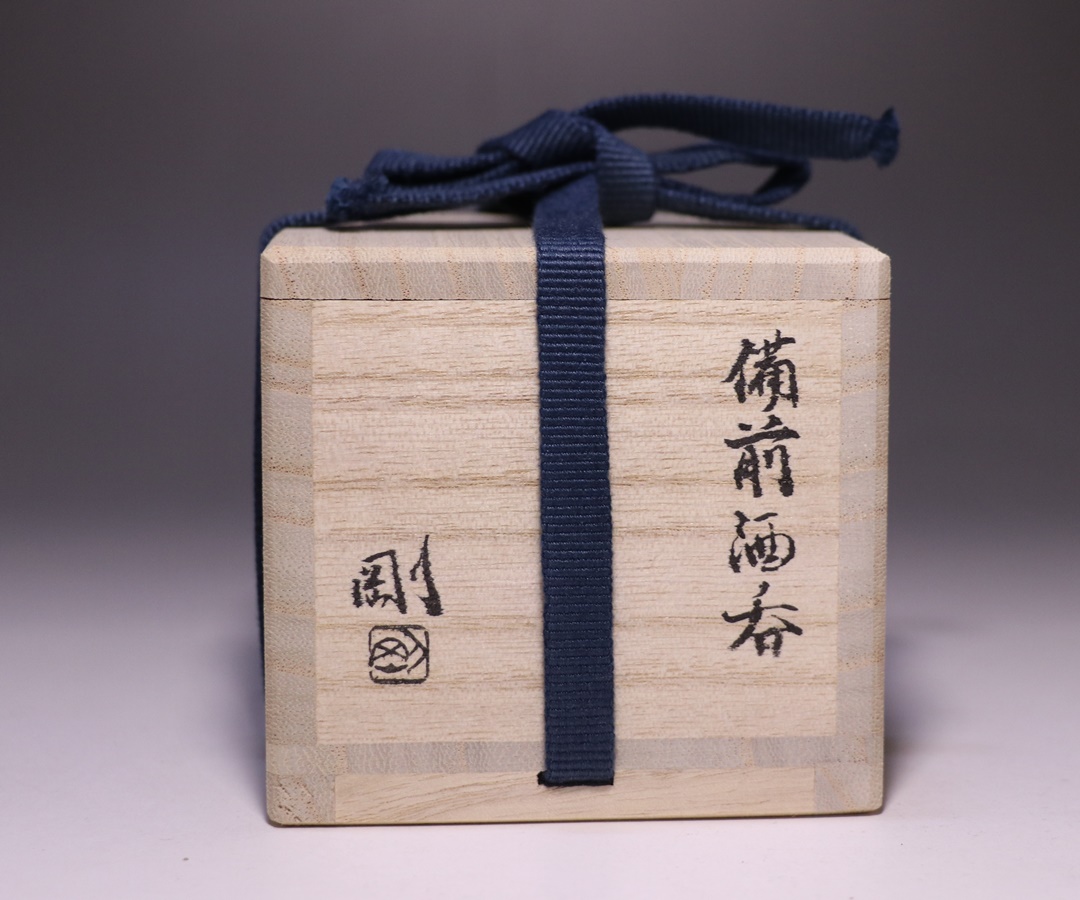 備前酒呑
剛